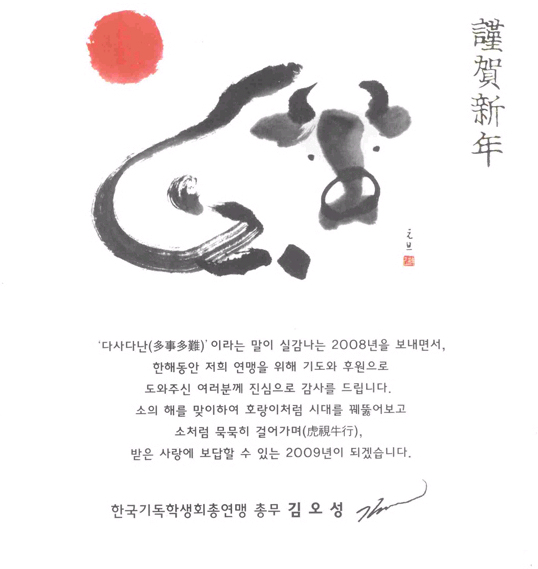 謹賀新年
元旦
'다사다난(多事多難)'이라는 말이 실감나는 2008년을 보내면서,
한해동안 저희 연맹을 위해 기도와 후원으로
도와주신 여러분께 진심으로 감사를 드립니다.
소의 해를 맞이하여 호랑이처럼 시대를 꿰뚫어보고
소처럼 묵묵히 걸어가며(虎視牛行),
받은 사랑에 보답할 수 있는 2009년이 되겠습니다.
한국기독학생회총연맹 총무 김오성